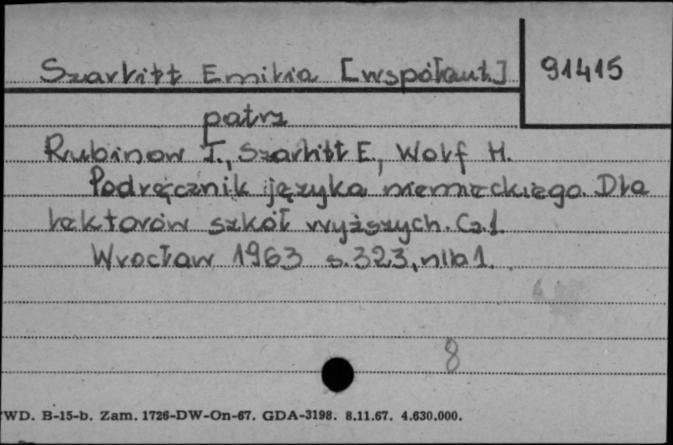 Szarlitt Emilia [współaut.] 91415
patrz
Rubinow J., Szarlitt E., Wolf H.
Podręcznik języka niemieckiego. Dla
lektorów szkół wyższych. Cz.1.
Wrocław 1963 s.323, nlb 1.
8
WD. B-15-b. Zam. 1726-DW-On-67. GDA-3198. 8.11.67. 4.630.000.